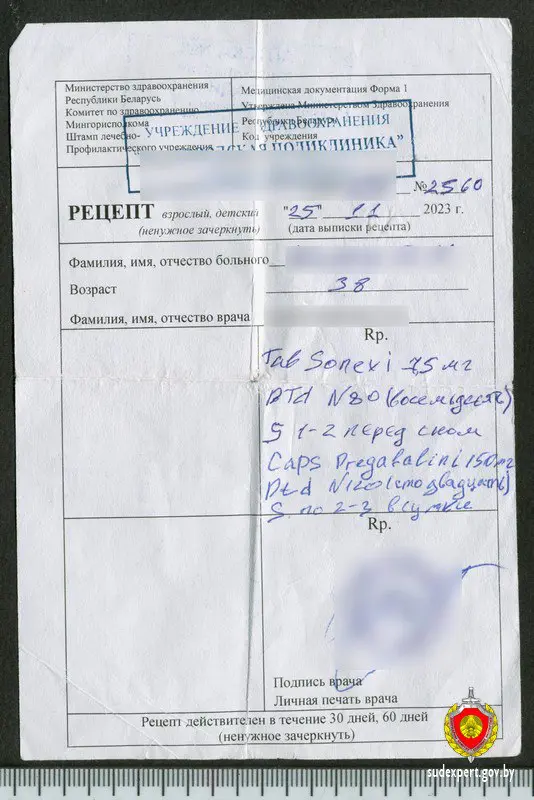 Министерство здравоохранения
Республики Беларусь
Комитет по здравоохранению
Мингорисполкома
Штамп лечебно-
Профилактического учреждения
Медицинская документация Форма 1
Утверждена Министерством Здравоохранения
Республики Беларусь
Код учреждения
УЧРЕЖДЕНИЕ ЗДРАВООХРАНЕНИЯ
ПОЛИКЛИНИКА"
№2560
РЕЦЕПТ взрослый, детский "25" 11 2023 г.
(ненужное зачеркнуть) (дата выписки рецепта)
Фамилия, имя, отчество больного
Возраст 38
Фамилия, имя, отчество врача
Rp.
Tab Sonexi 7,5 мг
DTd N80 (восемьдесят)
S 1-2 перед сном
Caps Pregabalini 150 мг
Dtd N120 (сто двадцать)
S по 2-3 в сутки
Rp.
Подпись врача
Личная печать врача
Рецепт действителен в течение 30 дней, 60 дней
(ненужное зачеркнуть)
sudexpert.gov.by